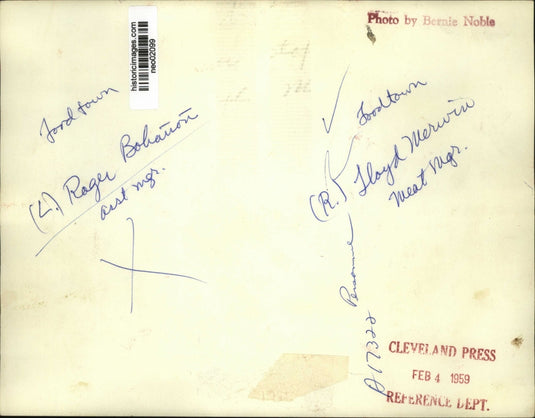 historicimages.com
neo02099
Photo by Bernie Noble
Foodtown
(L.) Roger Bohanon
asst mgr.
Foodtown
(R.) Lloyd Merwin
Meat Mgr.
Personnel
CLEVELAND PRESS
FEB 4 1959
REFERENCE DEPT.